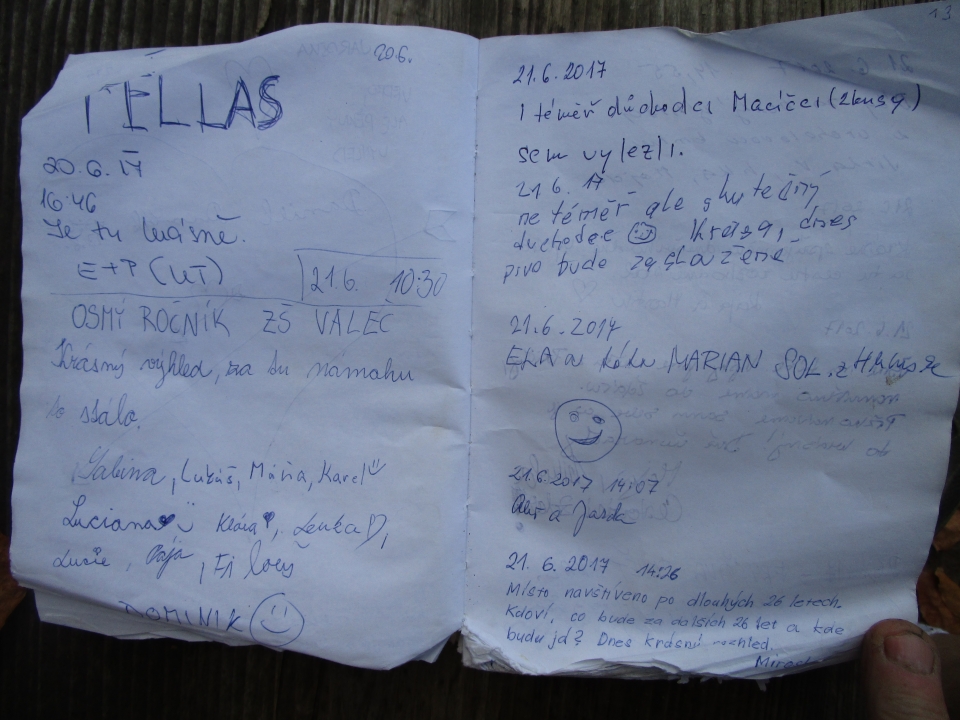 20.6.
TĚLLAS
20.6.17
16:46
Je tu krásně.
E+P (UT)
21.6. 10:30
OSMÝ ROČNÍK ZŠ VALEČ
Krásný výhled, za tu námahu
to stálo.
Sabina, Lukáš, Máňa, Karel
Luciana, Klára, Lenka D,
Lucie,
DOMINIK
13
21.6.2017
I téměř důchodci Macíčci (2kusy)
sem vylezli.
21.6.17
ne téměř ale skutečný
duchodce Krása, dnes
pivo bude zasloužené
21.6.2017
ELA a MARIAN SOL. z
21.6.2017 14:07
a Jarda
21.6.2017 14:26
Místo navštíveno po dlouhých 26 letech.
Kdoví, co bude za dalších 26 let a kde
budu já? Dnes krásný rozhled.